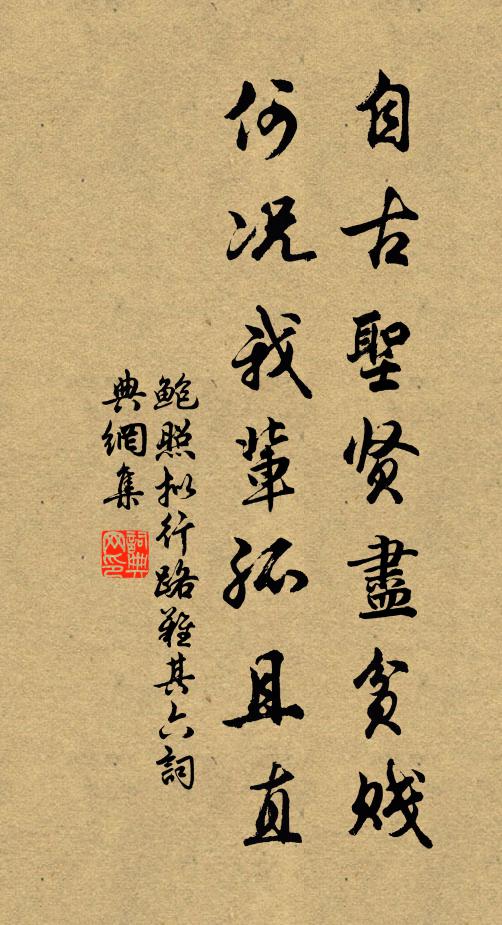 自古聖贤盡貧賤
何况我輩孤且直
鮑照拟行路難其六詞
典網集
詞典网印